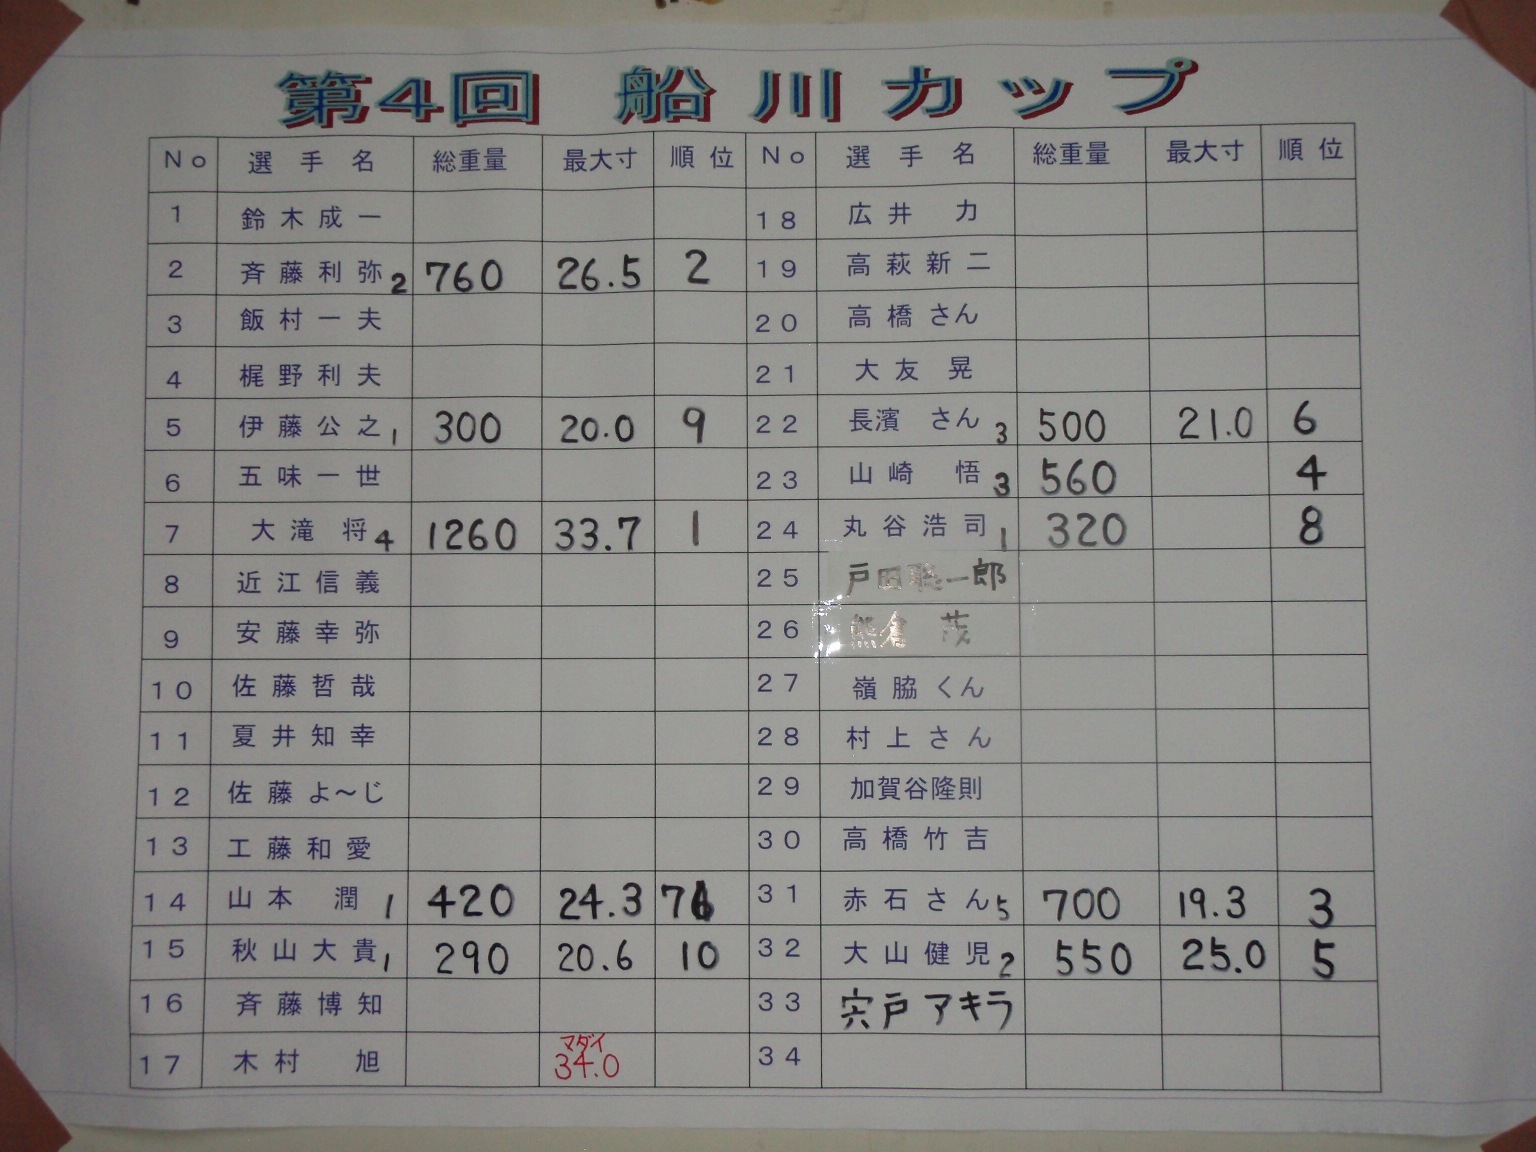 第4回 船川カップ
No 選手名 総重量 最大寸 順位 No 選手名 総重量 最大寸 順位
1 鈴木成一 18 広井 力
2 斉藤利弥 2 760 26.5 2 19 高萩新二
3 飯村一夫 20 高橋さん
4 梶野利夫 21 大友 晃
5 伊藤公之 1 300 20.0 9 22 長濱 さん 3 500 21.0 6
6 五味一世 23 山崎 悟 3 560 4
7 大滝 将 4 1260 33.7 1 24 丸谷浩司 1 320 8
8 近江信義 25 戸田聡一郎
9 安藤幸弥 26 熊倉 茂
10 佐藤哲哉 27 嶺脇くん
11 夏井知幸 28 村上さん
12 佐藤よ～じ 29 加賀谷隆則
13 工藤和愛 30 高橋竹吉
14 山本 潤 1 420 24.3 7 31 赤石さん 5 700 19.3 3
15 秋山大貴 1 290 20.6 10 32 大山健児 2 550 25.0 5
16 斉藤博知 33 宍戸アキラ
17 木村 旭 マダイ 34.0 34